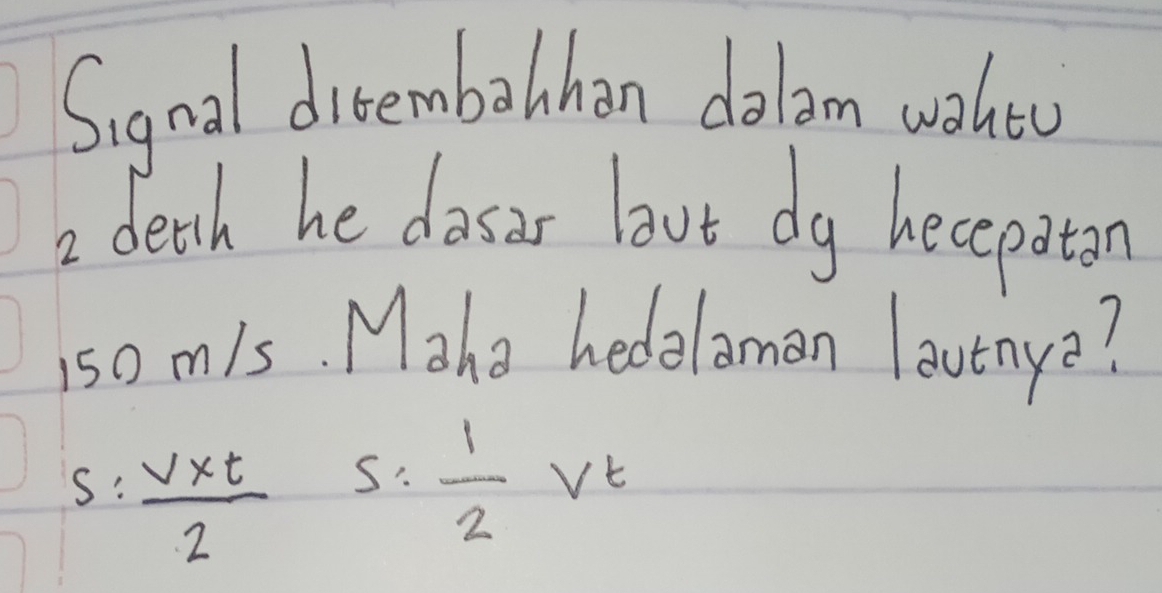 Signal ditembakkan dalam waktu
2 detik ke dasar laut dg kecepatan
150 m/s. Maka kedalaman lautnya?
s : v x t / 2 s : 1/2 vt